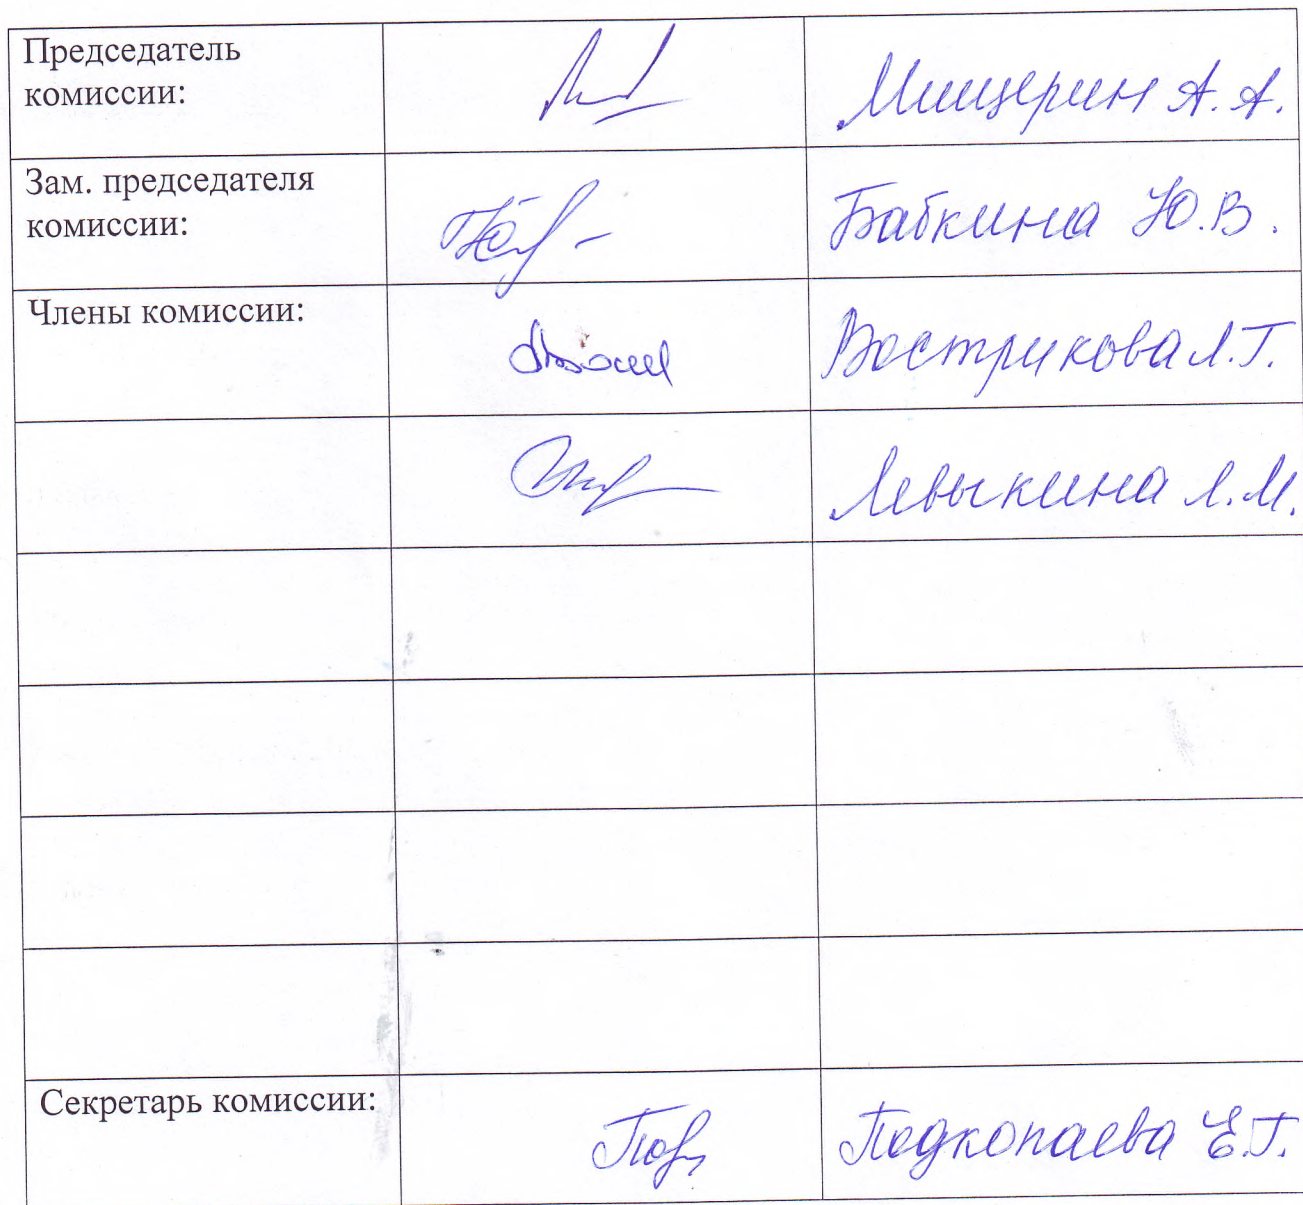 Председатель
комиссии:
Мищерин А. А.
Зам. председателя
комиссии:
Бабкина Ю.В.
Члены комиссии:
Вострикова Л.Г.
Левыкина Л.М.
Секретарь комиссии:
Подкопаева Е.Г.